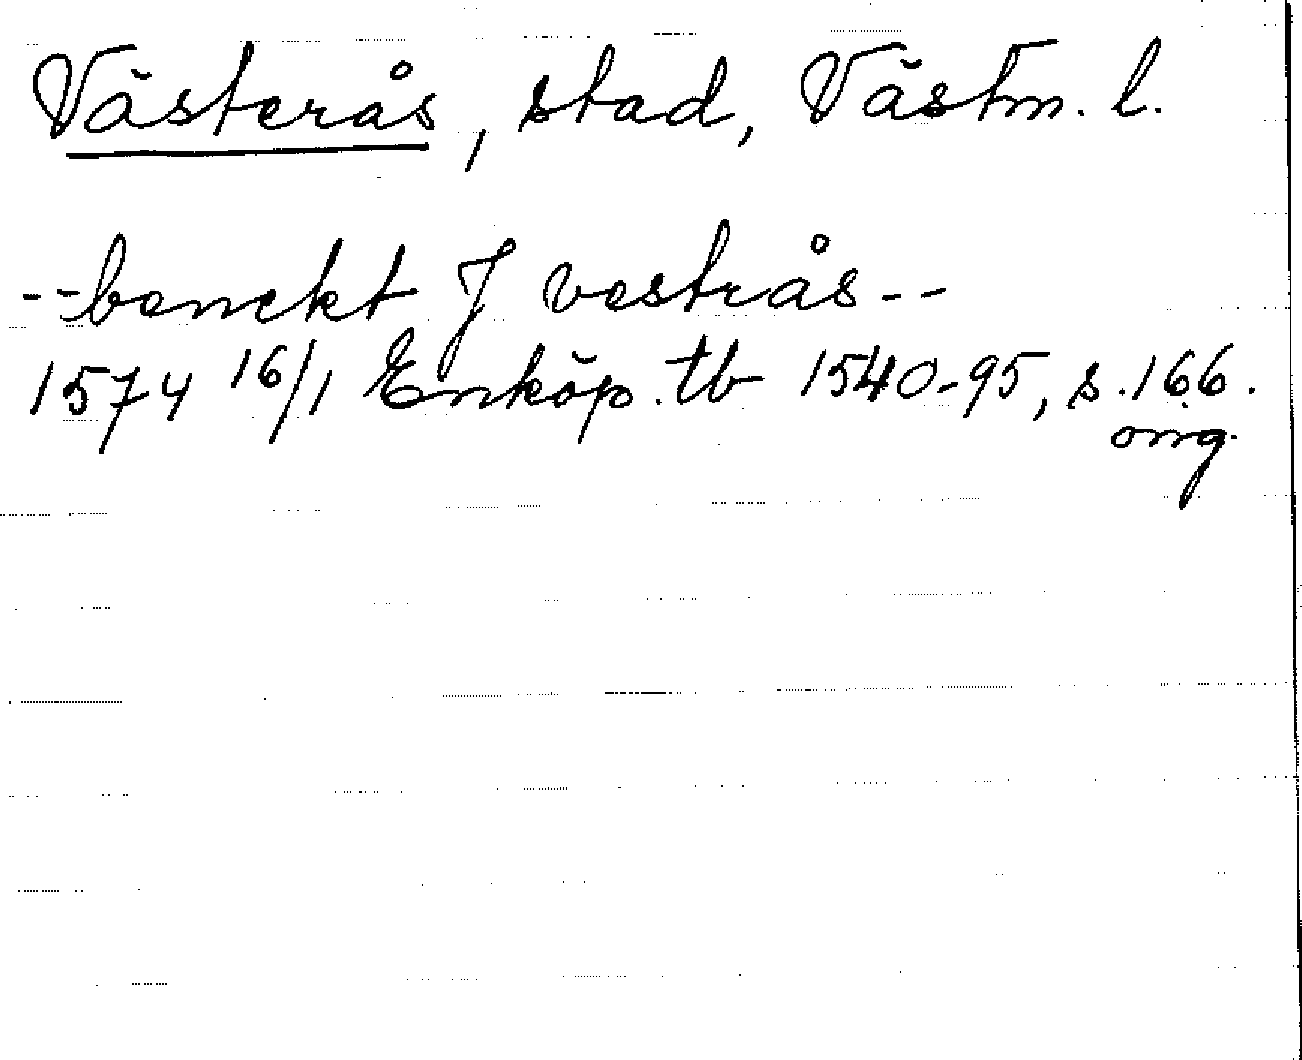 Västerås, stad, Västm. l.
--benckt J vestrås--
1574 16/1 Enköp. tb 1540-95, s. 166.
orig.